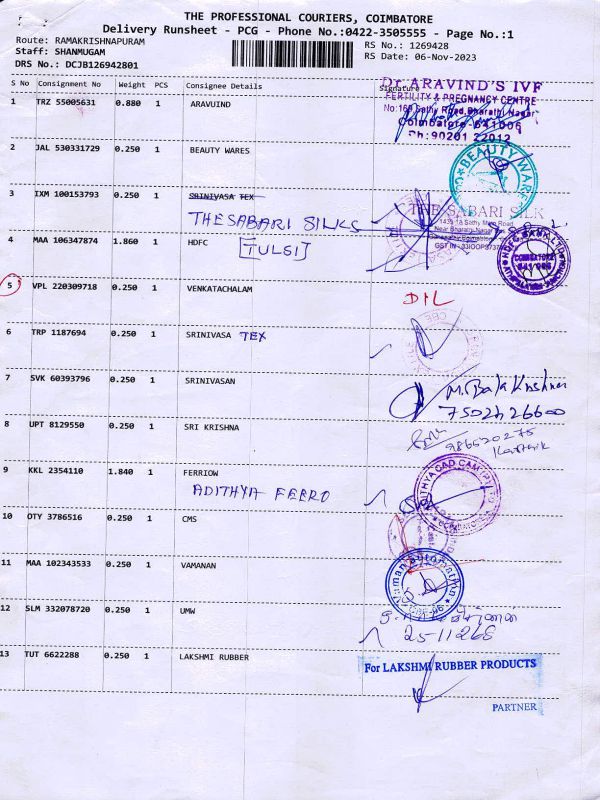 THE PROFESSIONAL COURIERS, COIMBATORE
Delivery Runsheet - PCG - Phone No.:0422-3505555 - Page No.:1
Route: RAMAKRISHNAPURAM
Staff: SHANMUGAM
DRS No.: DCJB126942801
RS No.: 1269428
RS Date: 06-Nov-2023
S No Consignment No Weight PCS Consignee Details Signature
1 TRZ 55005631 0.880 1 ARAVUIND
Dr. ARAVIND'S IVF
FERTILITY & PREGNANCY CENTRE
No:169 Sathy Road, Bharathi Nagar
Coimbatore-641006
Ph:90201 22012
2 JAL 530331729 0.250 1 BEAUTY WARES
BEAUTY WARES
3 IXM 100153793 0.250 1 SRINIVASA TEX
THE SABARI SILKS
THE SABARI SILK
Sathy Main Road
Near Bharathi Nagar
4 MAA 106347874 1.860 1 HDFC
[TULSI]
HDFC BANK LTD
COIMBATORE
641 006
5 VPL 220309718 0.250 1 VENKATACHALAM
D/L
6 TRP 1187694 0.250 1 SRINIVASA TEX
7 SVK 60393796 0.250 1 SRINIVASAN
M. Bala Krishnan
7502426600
8 UPT 8129550 0.250 1 SRI KRISHNA
Karthik
9 KKL 2354110 1.840 1 FERRIOW
ADITHYA FEERO
10 OTY 3786516 0.250 1 CMS
11 MAA 102343533 0.250 1 VAMANAN
12 SLM 332078720 0.250 1 UMW
25-11268
13 TUT 6622288 0.250 1 LAKSHMI RUBBER
For LAKSHMI RUBBER PRODUCTS
PARTNER